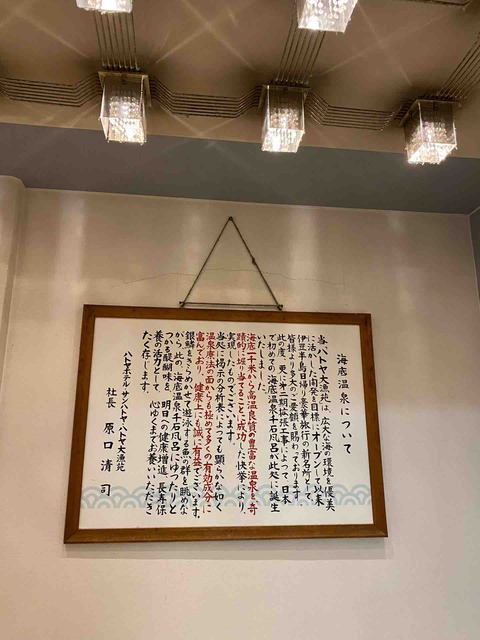 海底温泉について
当、ハトヤ大漁苑は、広大な海の環境を優美
に活かした開発を目標にオープンして以来
伊豆半島日帰り豪華旅行の新名所として、
皆様より多大のご愛顧を賜わっております。
此の度、更に、第二期拡張工事によって、日本
で初めての「海底温泉千石風呂」が此処に誕生
いたしました。
海底二千米から高温良質の豊富な温泉を奇
蹟的に掘り当てることに成功した快挙により、
実現したものでございます。
当処に掲示の分析表によっても顕らかな如く
温泉療法の面からも極めて多くの有効成分に
富んでおり、健康上にも誠に有益でございます。
銀鱗をきらめかせて遊泳する魚の群を眺めな
がら、此の、海底温泉千石風呂にゆったりと
つかる醍醐味を、明日への健康増進、長寿保
養の活力として、心ゆくまでお養いいただき
たく存じます。
ハトヤホテル・サンハトヤ・ハトヤ大漁苑
社長 原口清司